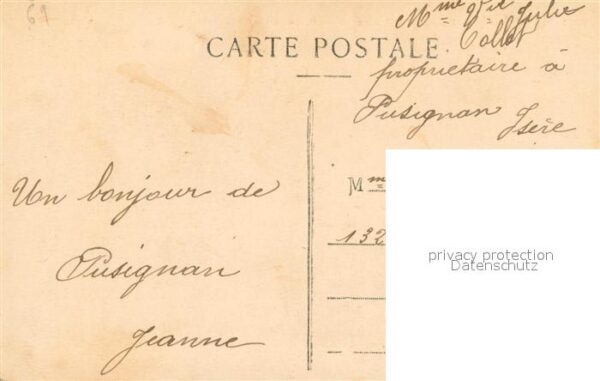 69
CARTE POSTALE
Mme Vve Julie
Collet
propriétaire à
Pusignan
Isère
Un bonjour de
Pusignan
Jeanne
Mme
132
privacy protection
Datenschutz